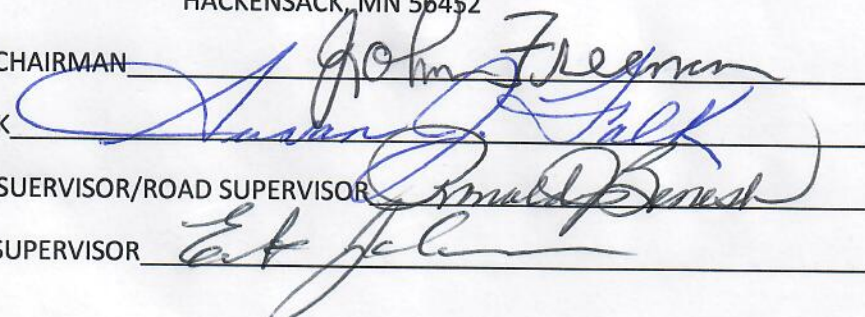 HACKENSACK, MN 56452
CHAIRMAN John Freeman
K Susan J. Falk
SUERVISOR/ROAD SUPERVISOR Ronald Benesh
SUPERVISOR